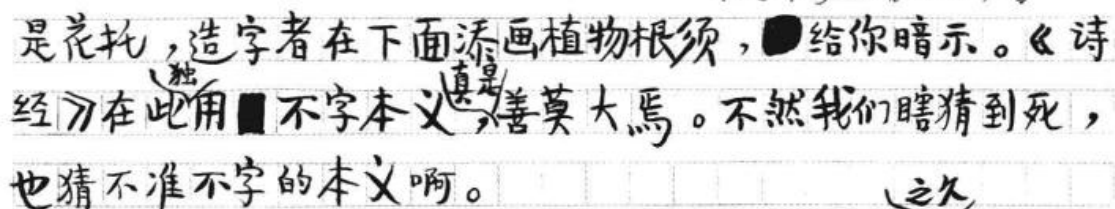 是花托，造字者在下面添画植物根须，给你暗示。《诗
经》在此独用不字本义，真是善莫大焉。不然我们瞎猜到死，
也猜不准不字的本义啊。
之久